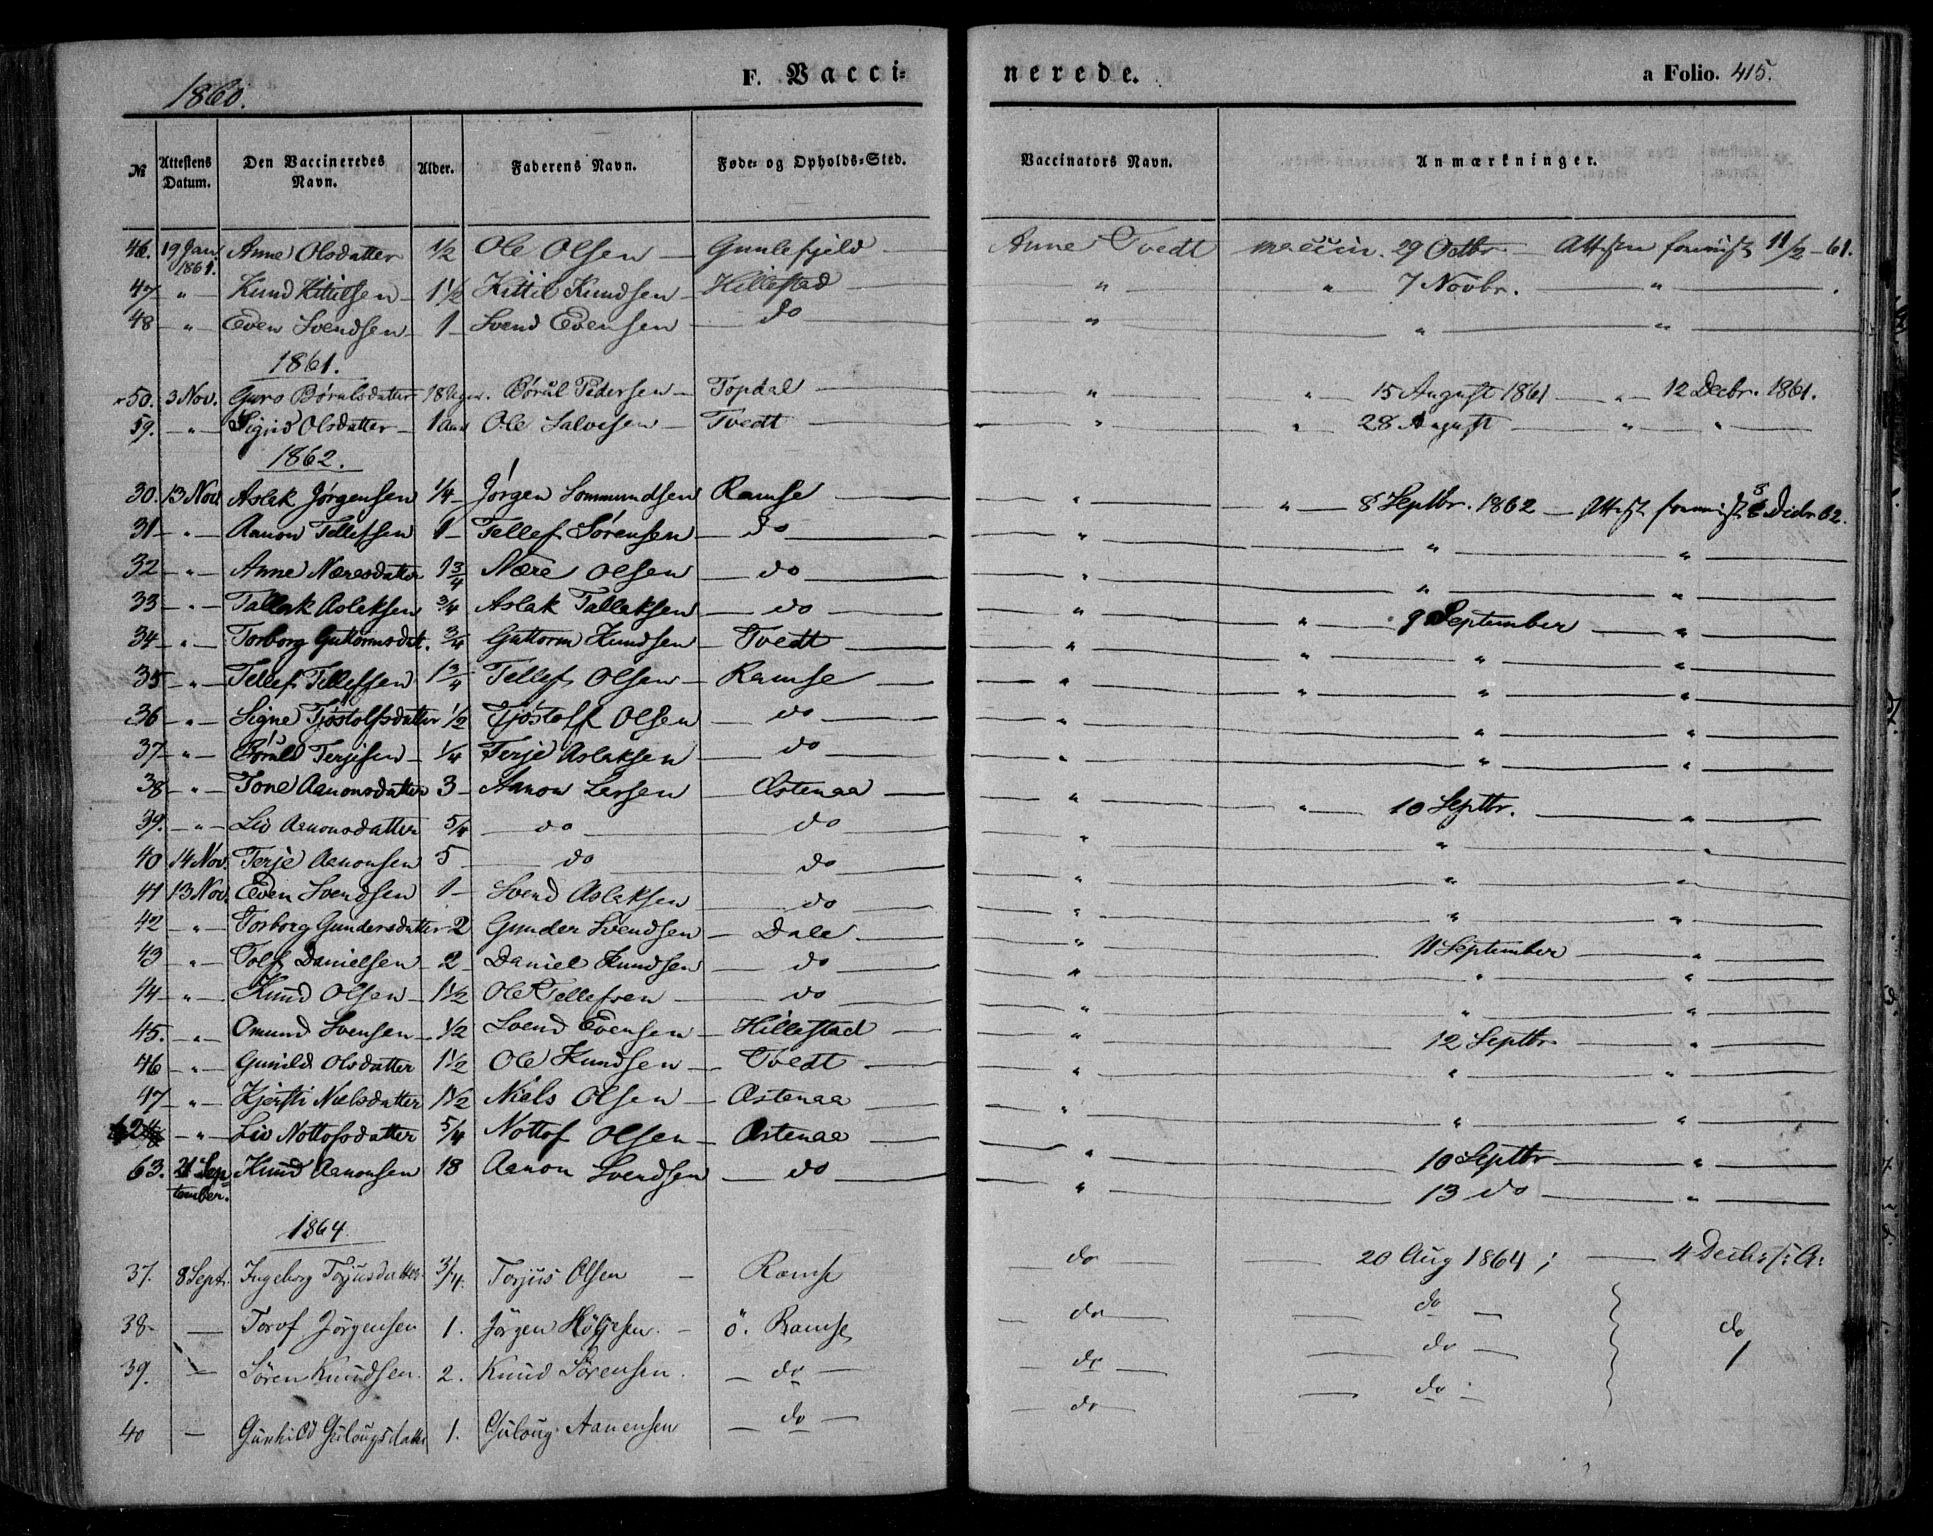 F. Vacci= nerede. a Folio. 415.
1860.
№ Attestens Datum. Den Vaccineredes Navn. Alder. Faderens Navn. Føde- og Opholds-Sted. Vaccinators Navn. Anmærkninger.
46. 19 Jan 1861. Anne Olsdatter 1/2 Ole Olsen — Gunlefjeld — Anne Tvedt vaccin. 29 Octbr. — Attesten 11/2 - 61.
47 " — Knud Kittilsen — 1 1/2 Kittil Knudsen — Hillestad — " " 7 Novbr. — "
48 — " — Even Svendsen — 1 — Svend Evensen — do — " — " — "
1861.
50. 3 Nov. Guro Børulsdatter 18 Børul Pedersen — Topdal — " " — 15 August 1861 — " — 12 Decbr. 1861.
59. — " Sigrid Olsdatter — 1 Ole Salvesen — Tvedt — " " — 28 August — " "
1862.
30. 13 Nov. Aslak Jørgensen 1/4 — Jørgen Sommundsen Ramse — " — " — 8 Septbr. 1862 — Attest 8 Decbr. 62.
31 — " — Aanon Tellefsen 1 — Tellef Sørensen — do — " — " — "
32 — " — Anne Næresdatter 1 3/4 Nære Olsen — do — " — " — "
33 — " — Tallak Aslaksen 3/4 Aslak Tallaksen — do — " — " — 9 September — "
34 — " — Torborg Guttormsdat. 3/4 Guttorm Knudsen — Tvedt — " — " — " — "
35 — " — Tellef Tellefsen 1 3/4 Tellef Olsen — Ramse — " — " — " — "
36 — " — Signe Tjøstolfsdatter 1/2 Tjøstolf Olsen — do — " — " — "
37 — " — Børuld Terjesen — 1/4 Terje Aslaksen — do — " — " — "
38 — " — Tone Aanonsdatter 3 — Aanon Larsen — Østenaa — " — " — 10 Septbr. — "
39. — " — Liv Aanonsdatter 5/4 — do — do — " — " — "
40 14 Nov. Terje Aanonsen 5 — do — do — " — " — "
41 13 Nov. Even Svendsen 1 — Svend Aslaksen — do — " — " — "
42 — " — Torborg Gundersdatter 2 Gunder Svendsen — Dale — " — 11 September — "
43 " — Tolf Danielsen — 2 — Daniel Knudsen — do — " — " — "
44 — " — Knud Olsen — 1 1/2 Ole Tellefsen — do — " — " — "
45. — " — Omund Svensen — 1/2 Svend Evensen — Hillestad — " — 12 Septbr — "
46 — " — Gunild Olsdatter 1 1/2 Ole Knudsen — Tvedt — " — " — "
47 — " — Kjersti Nielsdatter 1 1/2 Niels Olsen — Østenaa — " — " — "
62 — " — Liv Nottofsdatter 5/4 Nottof Olsen — Østenaa — " — 10 Septbr — "
63. 21 September. Knud Aanonsen 18 Aanon Svendsen — do — " — 13 do — "
1864.
37. 8 Sept. Ingeborg Torjusdatter 3/4. Torjus Olsen — Ramse — do — 20 Aug 1864; — 4 Decbr s: A:
38 — Torof Jørgensen 1. Jørgen Høljesen. — ö. Ramse — do — do — do
39. — Søren Knudsen. 2. Knud Sørensen. — do — do — do —
40 — Gunhild Gulougsdatter 1. Guloug Aanensen — do — do — do